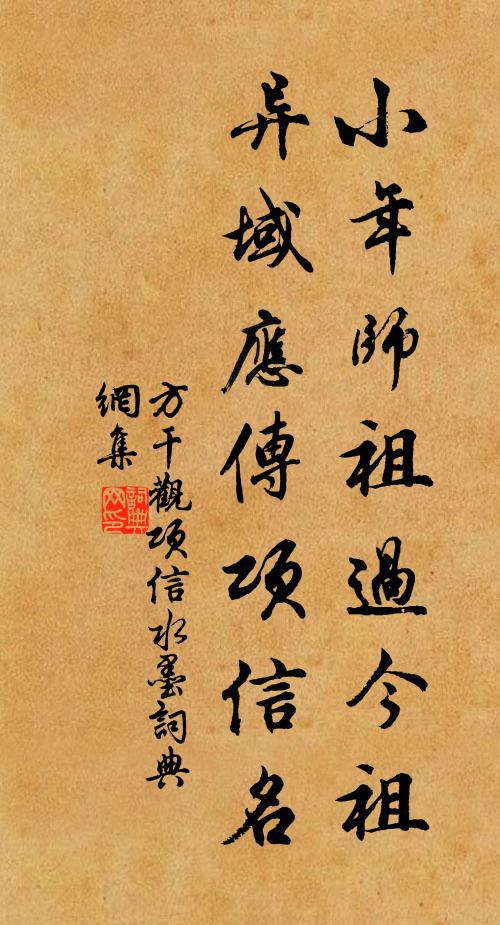 小年師祖過今祖
异域應傳項信名
方干觀項信水墨詞典
網集
詞典網印